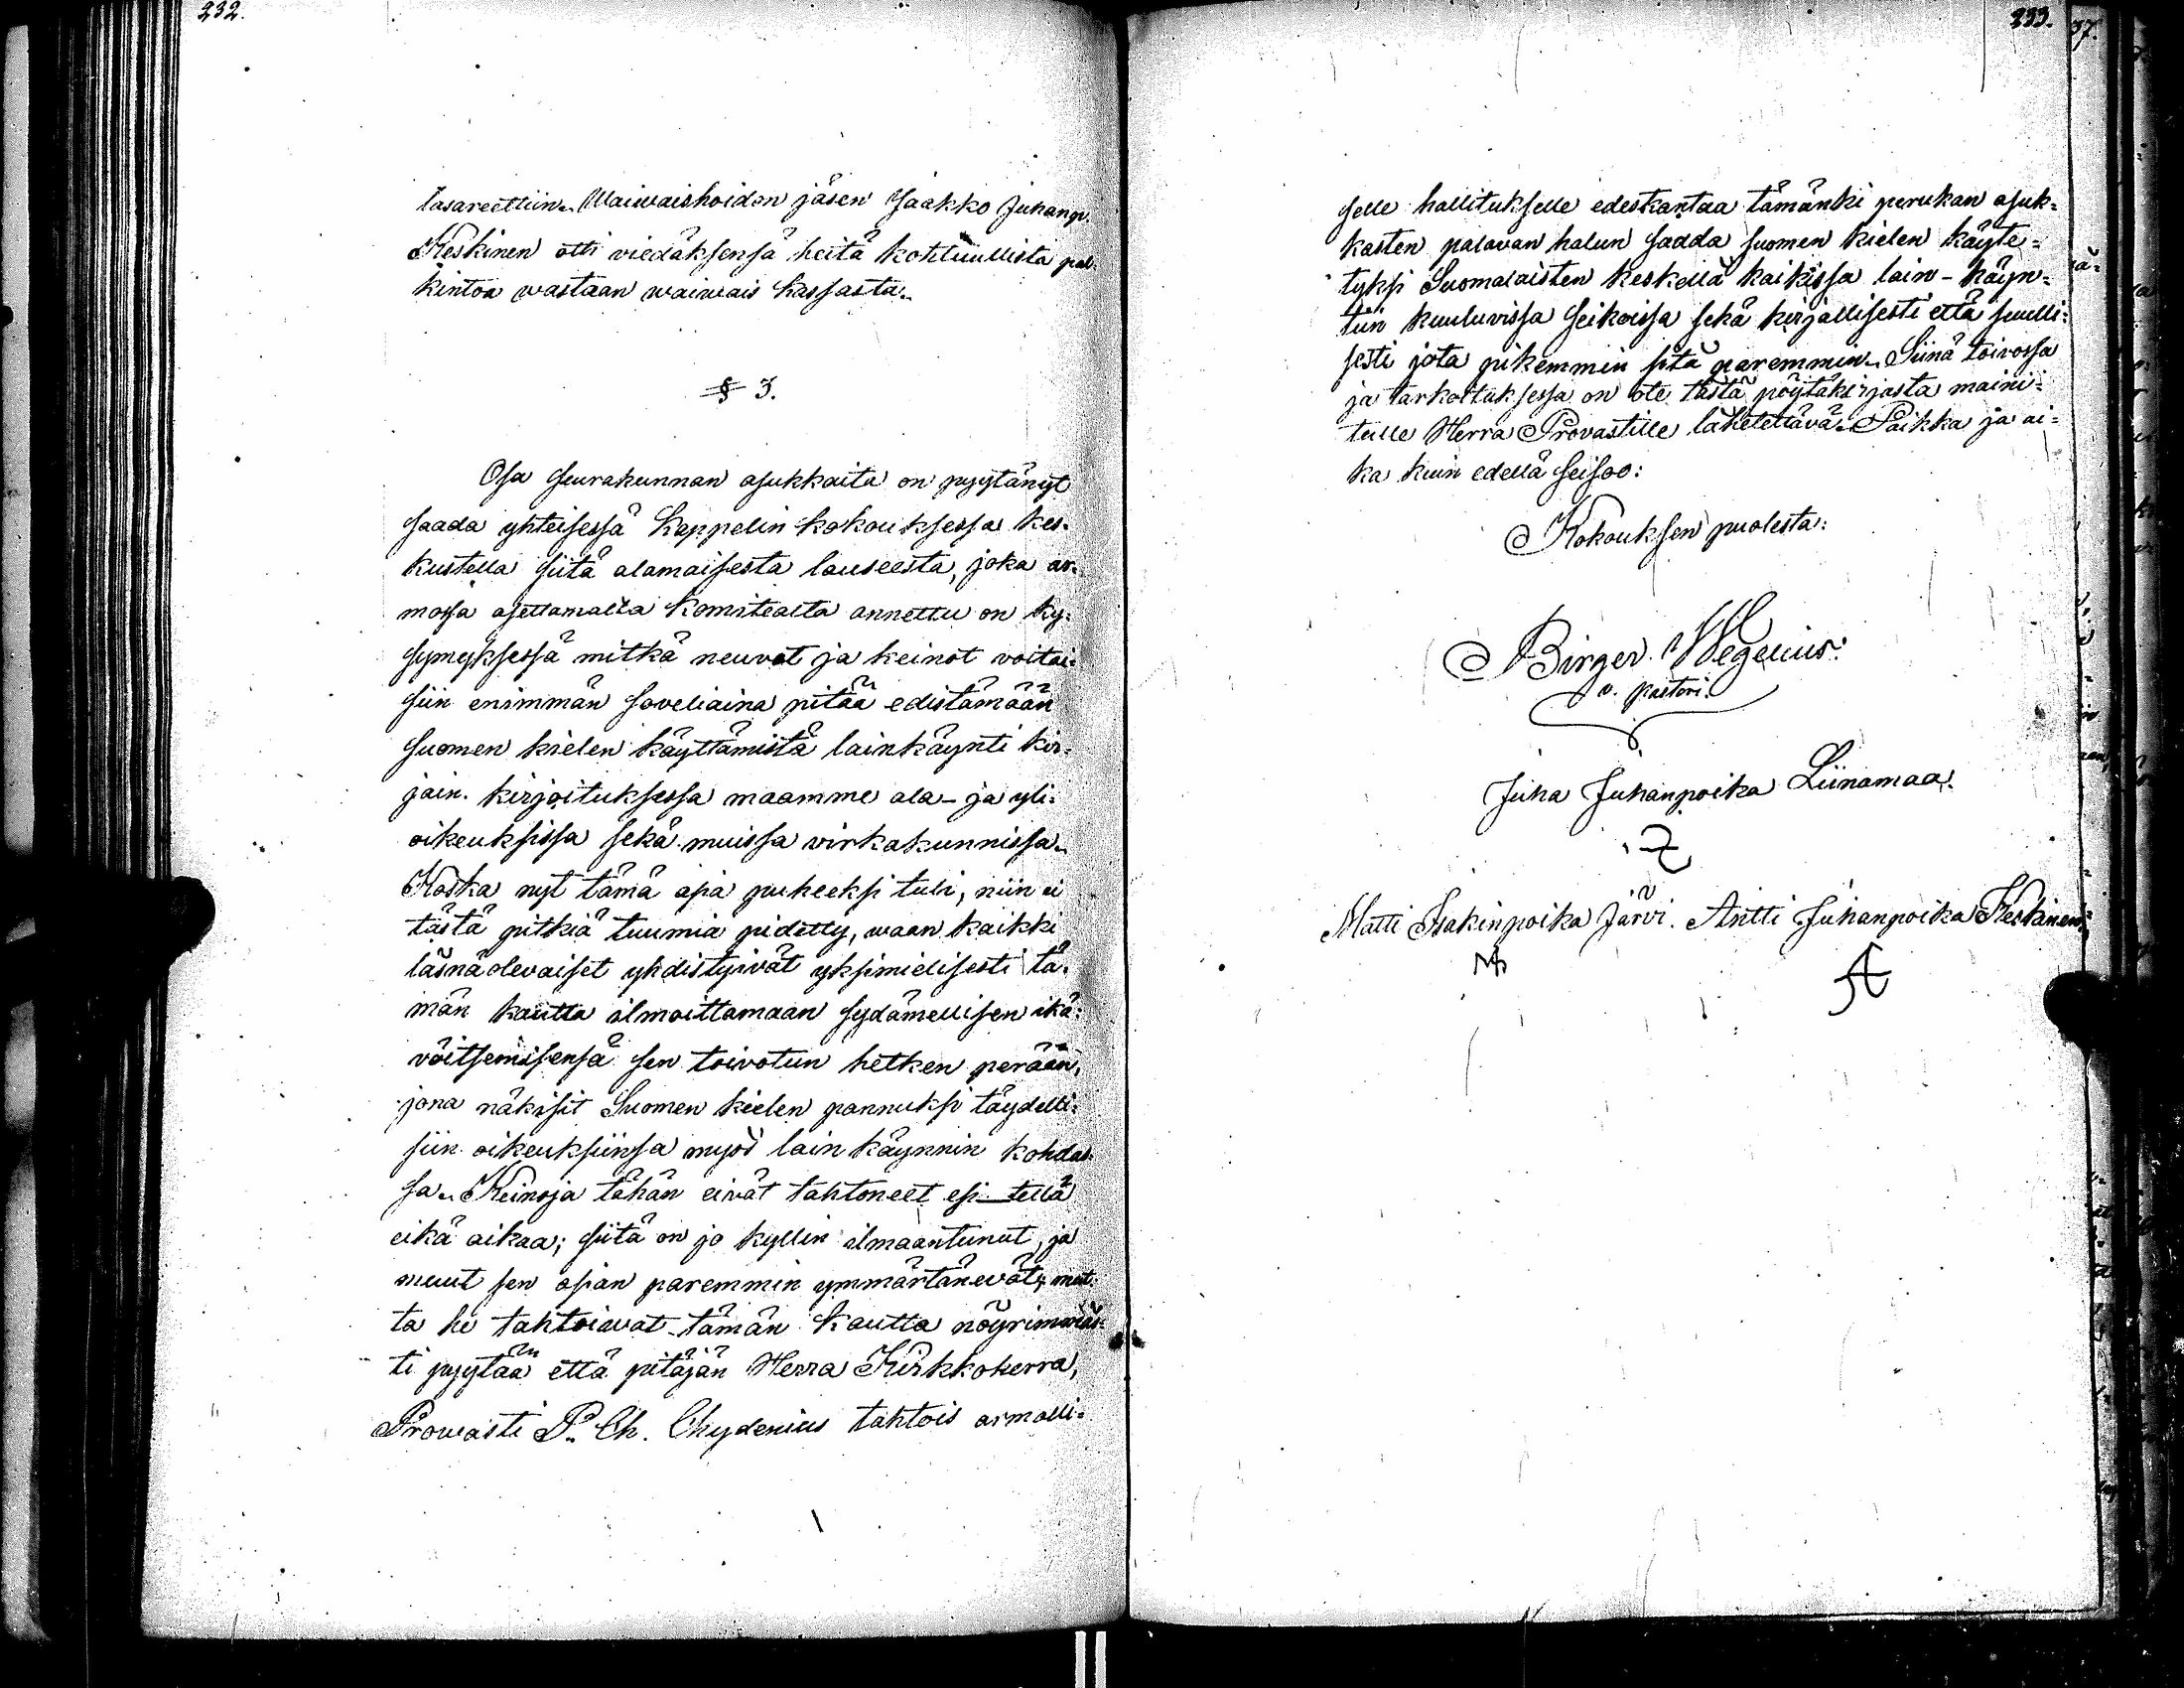 232.
lasareettiin. Waiwaishoidon jäsen Jaakko Juhanp.
Keskinen otti viedäksensä heitä kohtuullista pal=
kintoa wastaan waiwais kassasta.
§ 3.
Osa seurakunnan asukkaita on pyytänyt
saada yhteisessä Kappelin kokouksessa kes=
kustella siitä alamaisesta lauseesta, joka ar=
mossa asettamalta komitealta annettu on ky=
symyksessä mitkä neuvot ja keinot voitai=
siin enimmän soveliaina pitää edistämään
suomen kielen käyttämistä lainkäynti kir=
jain. kirjoituksessa maamme ala- ja yli=
oikeuksissa sekä muissa virkakunnissa.
Koska nyt tämä asia puheeksi tuli, niin ei
tästä pitkiä tuumia pidetty, waan kaikki
läsnäolevaiset yhdistyivät yksimielisesti tä=
män kautta ilmoittamaan sydämellisen ikä=
vöitsemisensä sen toivotun hetken perään,
jona näkisit Suomen kielen pannuksi täydelli=
siin oikeuksiinsa myös lain käynnin kohdas=
sa. Keinoja tähän eivät tahtoneet esi-tellä
eikä aikaa; siitä on jo kyllin ilmaantunut, ja
muut sen asian paremmin ymmärtänevät; mut=
ta he tahtoiavat tämän kautta nöyrimmäs=
ti pyytää että pitäjän Herra Kirkkoherra,
Prowasti P. Ch. Chydenius tahtois armolli=
233.
37.
selle hallitukselle edeskantaa tämänki perukan asuk=
kasten palavan halun saada suomen kielen käyte=
tyksi Suomalaisten keskellä kaikissa lain-käyn=
tiin kuuluvissa seikoissa sekä kirjallisesti että suulli=
sesti jota pikemmin sitä paremmin. Siinä toivossa
ja tarkoituksessa on ote tästä pöytäkirjasta maini=
tulle Herra Provastille lähetettävä. Paikka ja ai=
ka kuin edellä seisoo:
Kokouksen puolesta:
Birger Wegelius.
v. pastori.
Juha Juhanpoika Liinamaa.
Matti Isakinpoika Järvi. Antti Juhanpoika Keskinen.